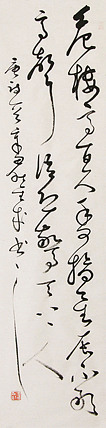 危樓高百尺手可摘星辰不敢
高聲語恐驚天上人
唐詩